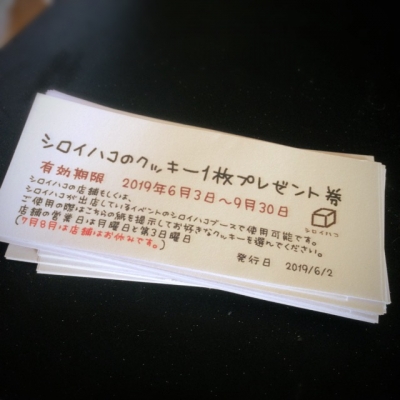 シロイハコのクッキー1枚プレゼント券
有効期限 2019年6月3日~9月30日
シロイハコの店舗もしくは、
シロイハコが出店しているイベントのシロイハコブースで使用可能です。
ご使用の際はこちらの紙を提示してお好きなクッキーを選んでください。
店舗の営業日は月曜日と第3日曜日
(7月8月は店舗はお休みです。)
シロイハコ
発行日 2019/6/2